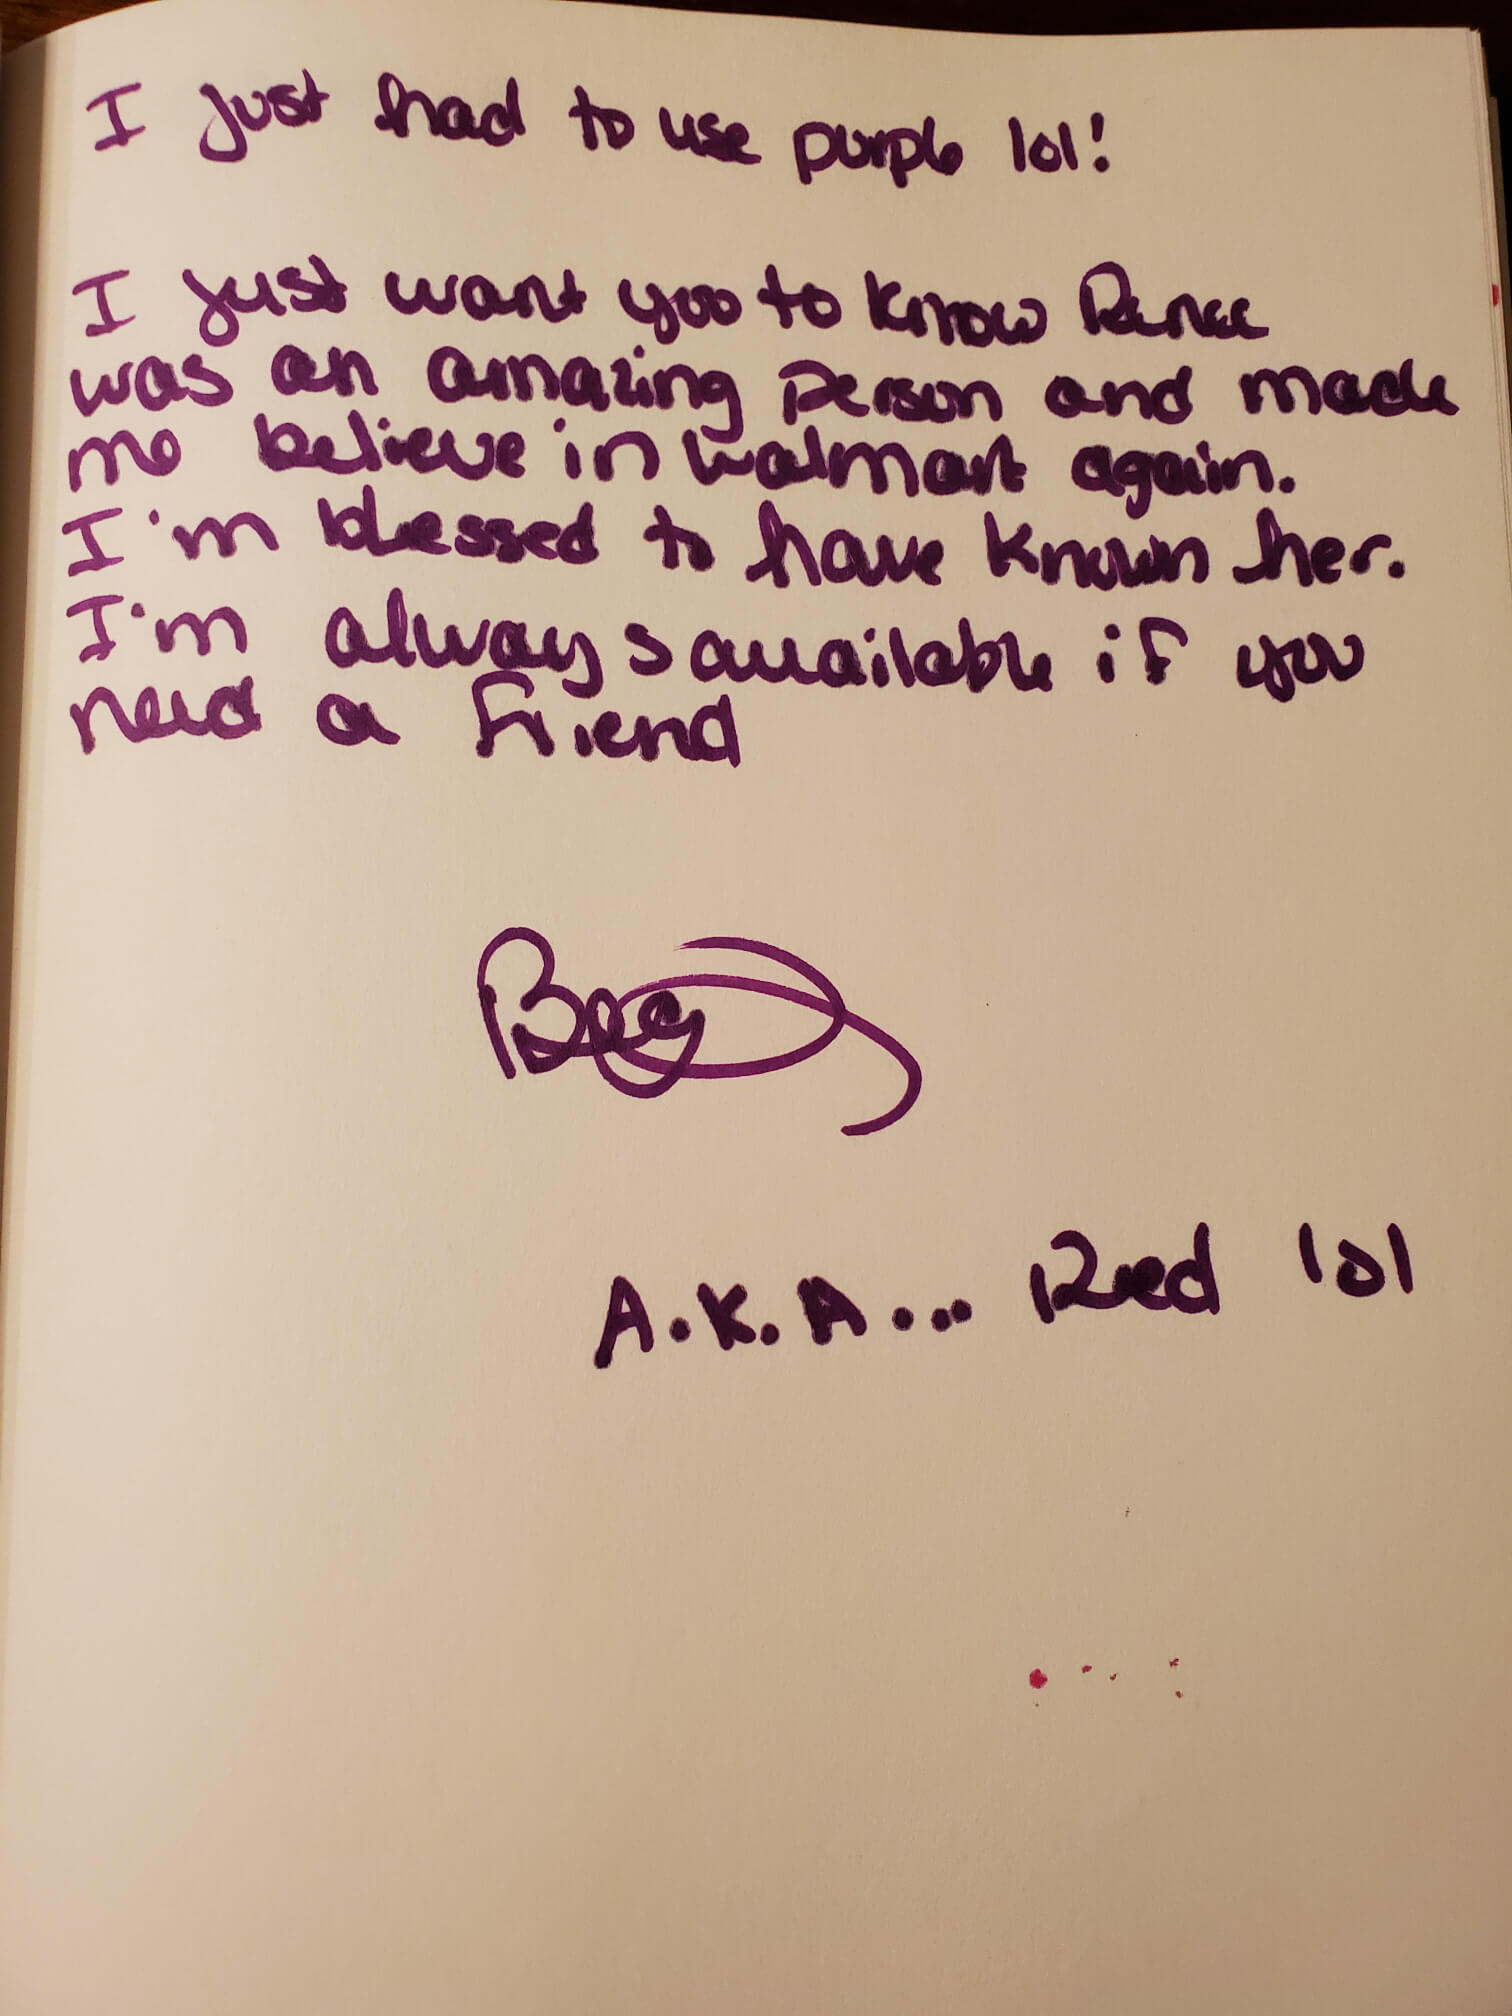 I just had to use purple lol!
I just want you to know Renee
was an amazing person and made
me believe in Walmart again.
I'm blessed to have known her.
I'm always available if you
need a friend
A.K.A... Red lol